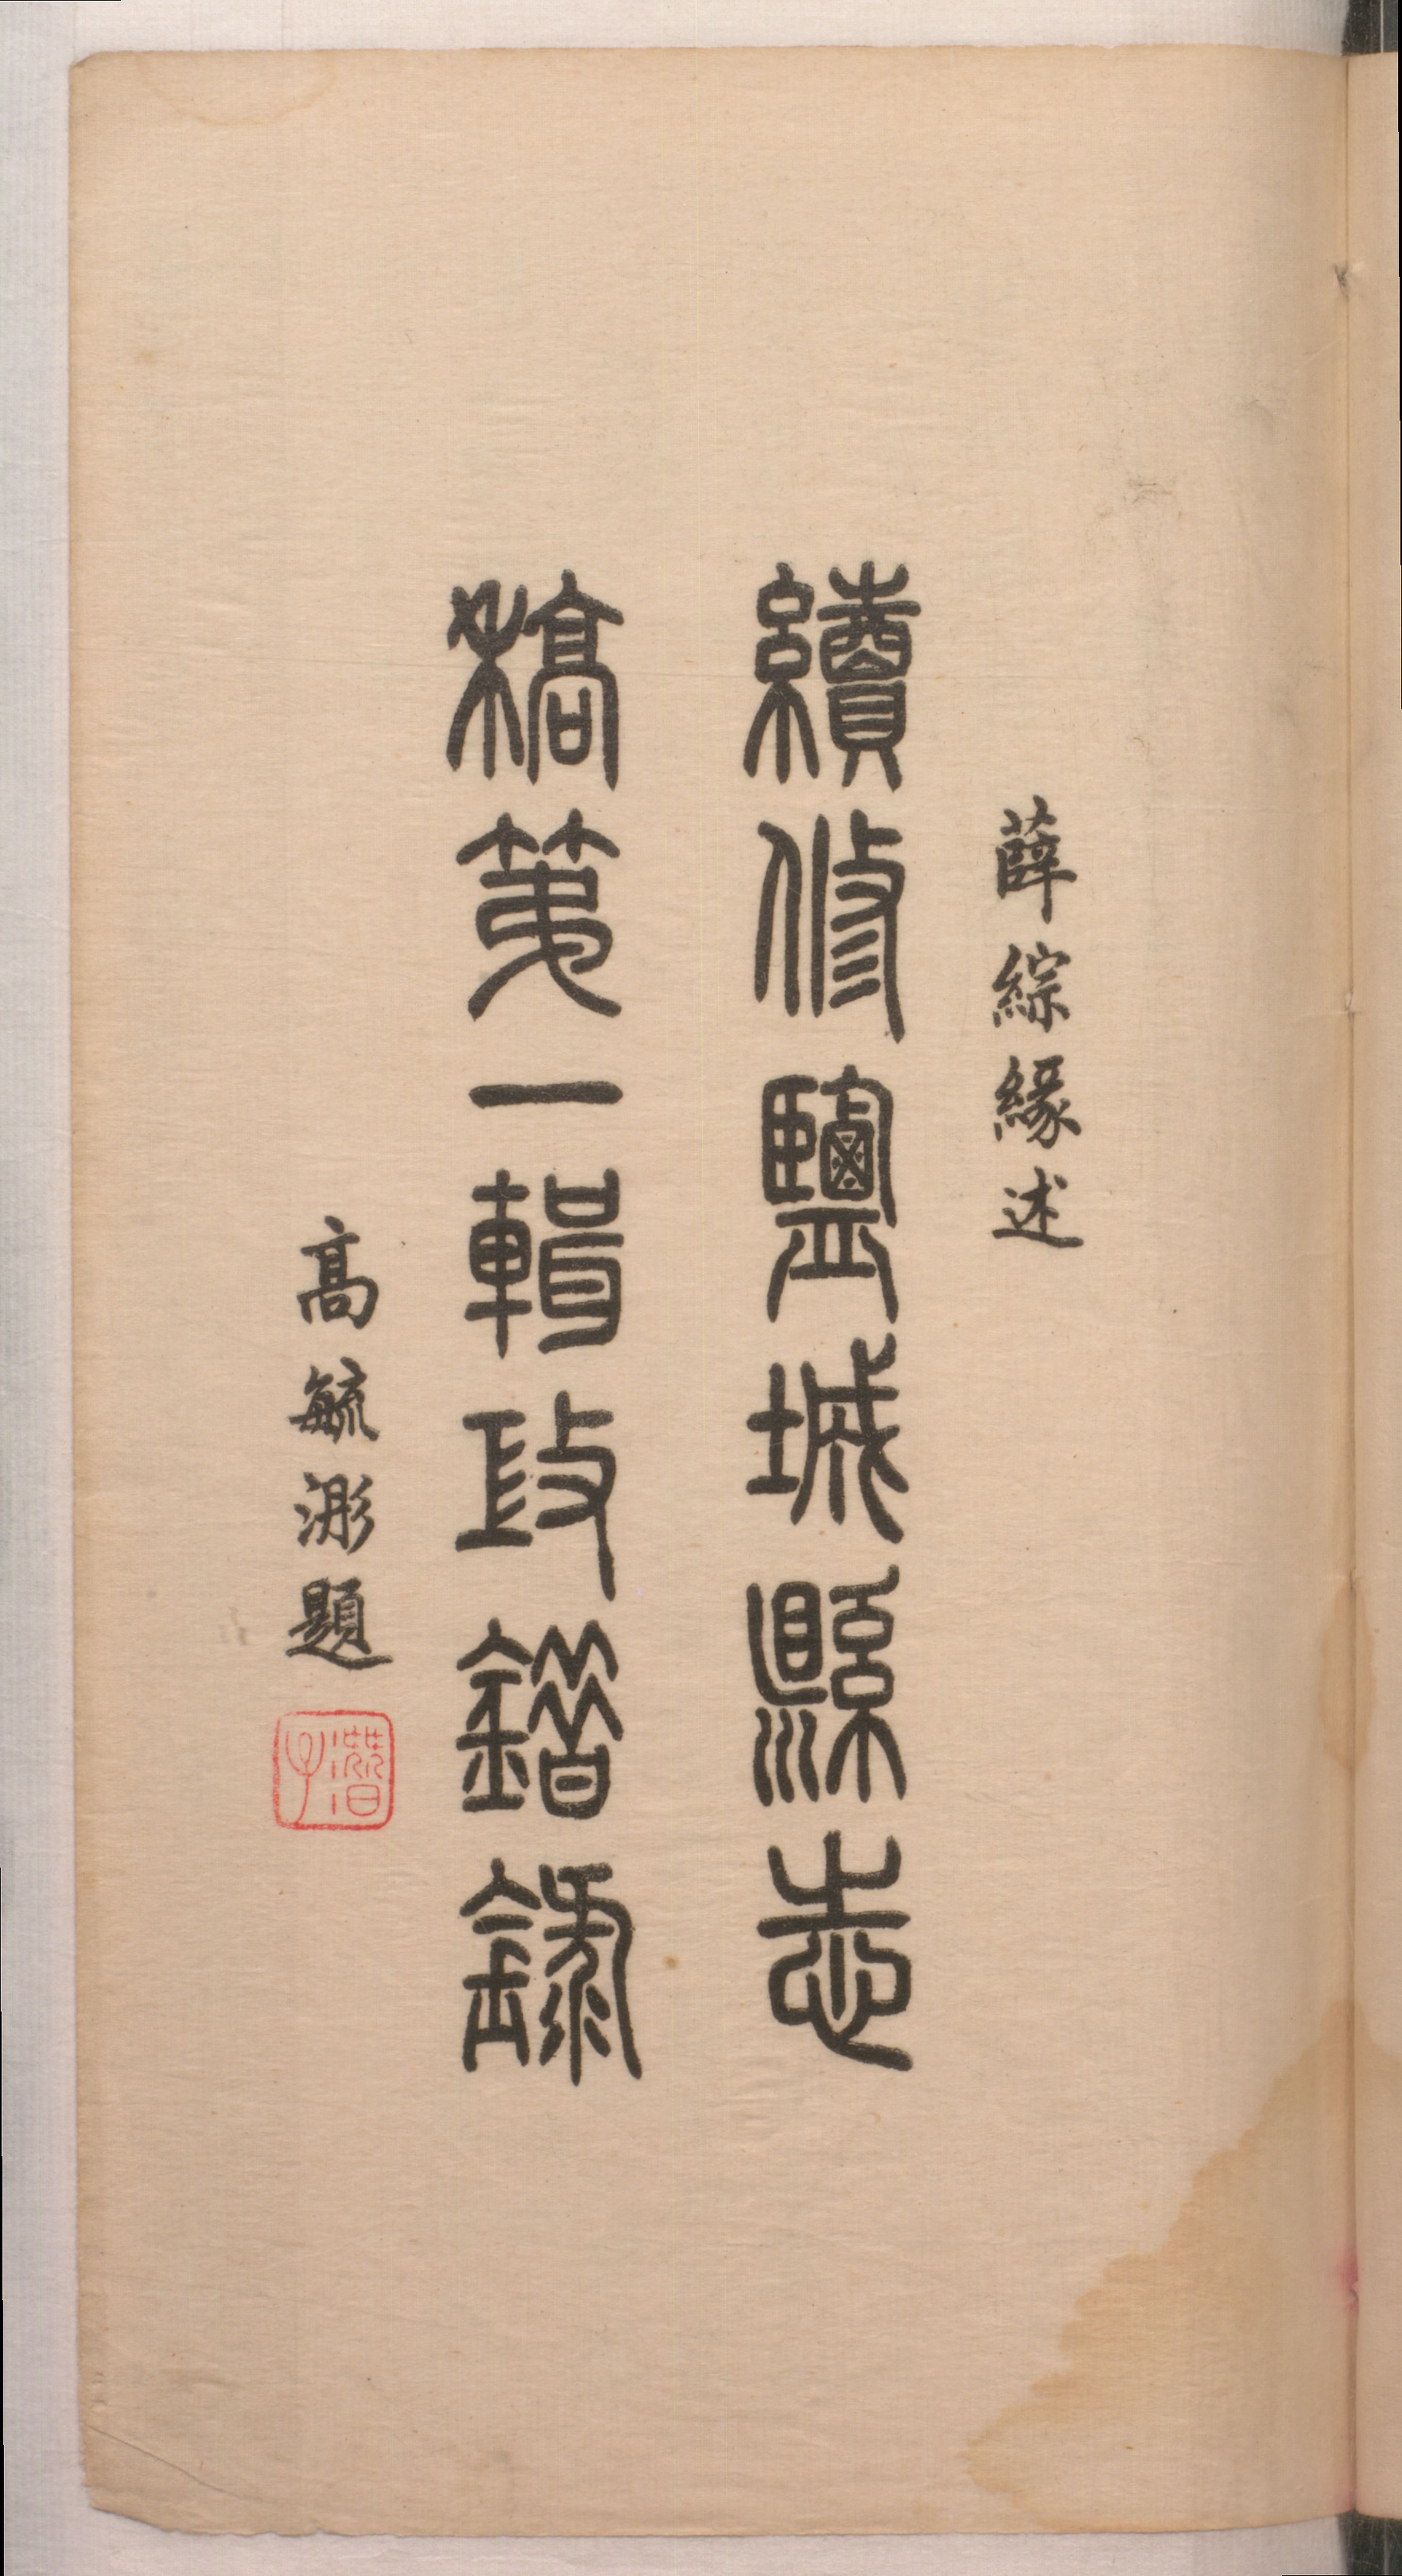 薛綜緣述
續修鹽城縣志
稿第一輯政鐕錄
高毓浵題
潛子